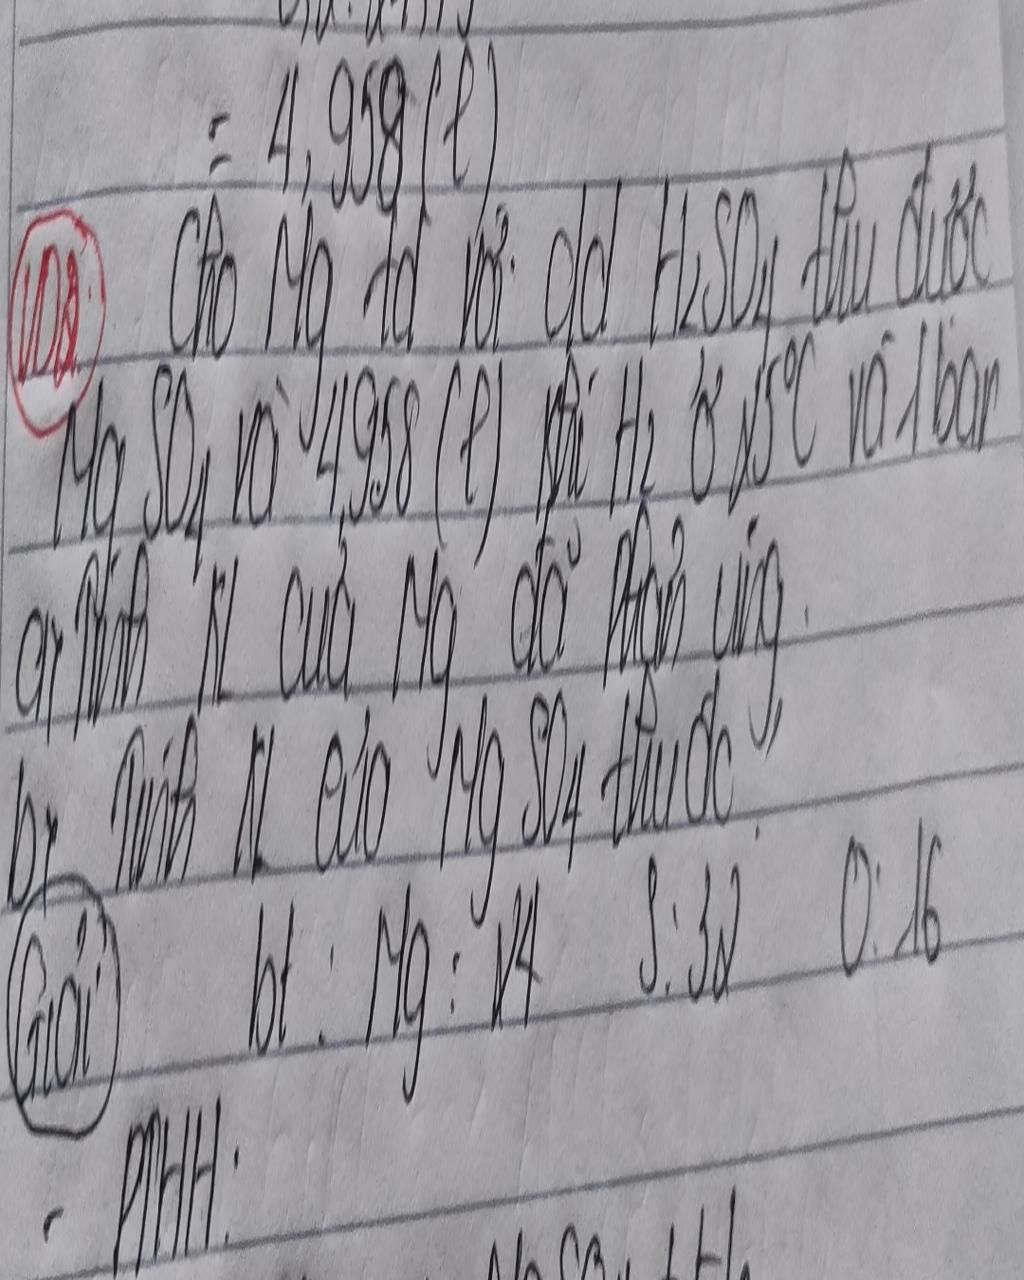 = 4,958 (l)
VD2: Cho Mg td với dd H₂SO₄ thu được
MgSO₄ và 4,958 (l) khí H₂ ở 25°C và 1 bar
a, Tính KL của Mg đã phản ứng.
b, Tính KL của MgSO₄ thu đc
Giải bt: Mg: 24 S: 32 O: 16
- PTHH: